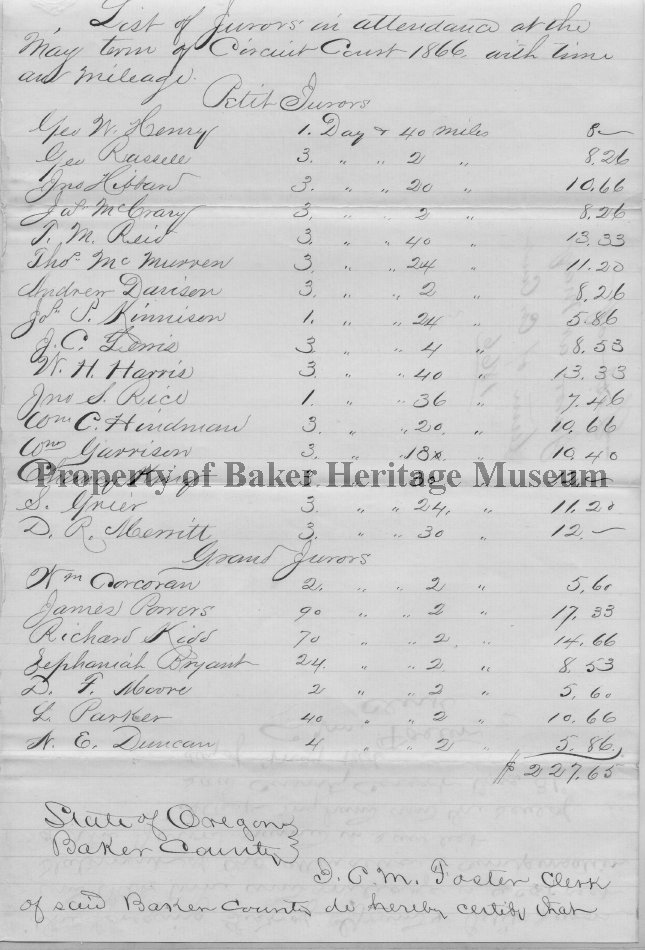 List of Jurors in attendance at the
May term of Circuit Court 1866. with time
and mileage.
Petit Jurors
Geo W. Henry 1. Day & 40 miles 8—
Geo Rassell 3. " " 2 " 8.26
Jno Hibbard 3. " " 20 " 10.66
Jas McCrary 3. " " 2 " 8.26
T. M. Reid 3. " " 40 " 13.33
Thos. McMurren 3. " " 24 " 11.20
Andrew Davison 3. " " 2 " 8.26
Jos. P. Kinnison 1. " " 24 " 5.86
J. C. 3. " " 4 " 8.53
W. H. Harris 3 " " 40 " 13.33
Jno S. Rice 1. " " 36 " 7.46
Wm C. Hindman 3. " " 20. " 10.66
Wm Garrison 3. " " 18 " 10.40
Property of Baker Heritage Museum
3. " " 30 " 12.—
S. Grier 3. " " 24. " 11.20
D. R. Merritt 3. " " 30 " 12.—
Grand Jurors
Wm Corcoran 2. " " 2 " 5.60
James Powers 90 " " 2 " 17.33
Richard Kidd 70 " " 2. " 14.66
Zephaniah Bryant 24. " " 2. " 8.53
D. F. Moore 2 " " 2 " 5.60
L. Parker 40. " " 2 " 10.66
N. E. Duncan 4 " " 2 " 5.86.
$227.65
State of Oregon
Baker County
I. P. M. Foster Clerk
of said Baker County do hereby certify that